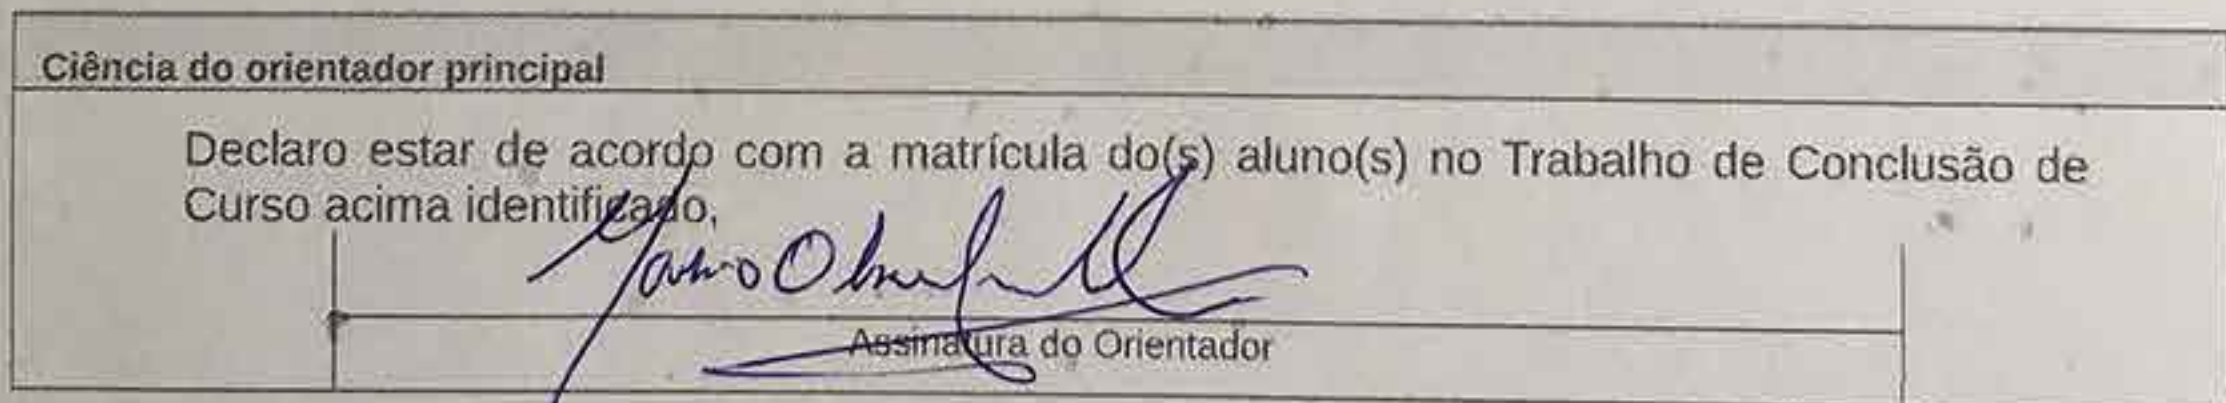 Ciência do orientador principal
Declaro estar de acordo com a matrícula do(s) aluno(s) no Trabalho de Conclusão de
Curso acima identificado,
Assinatura do Orientador